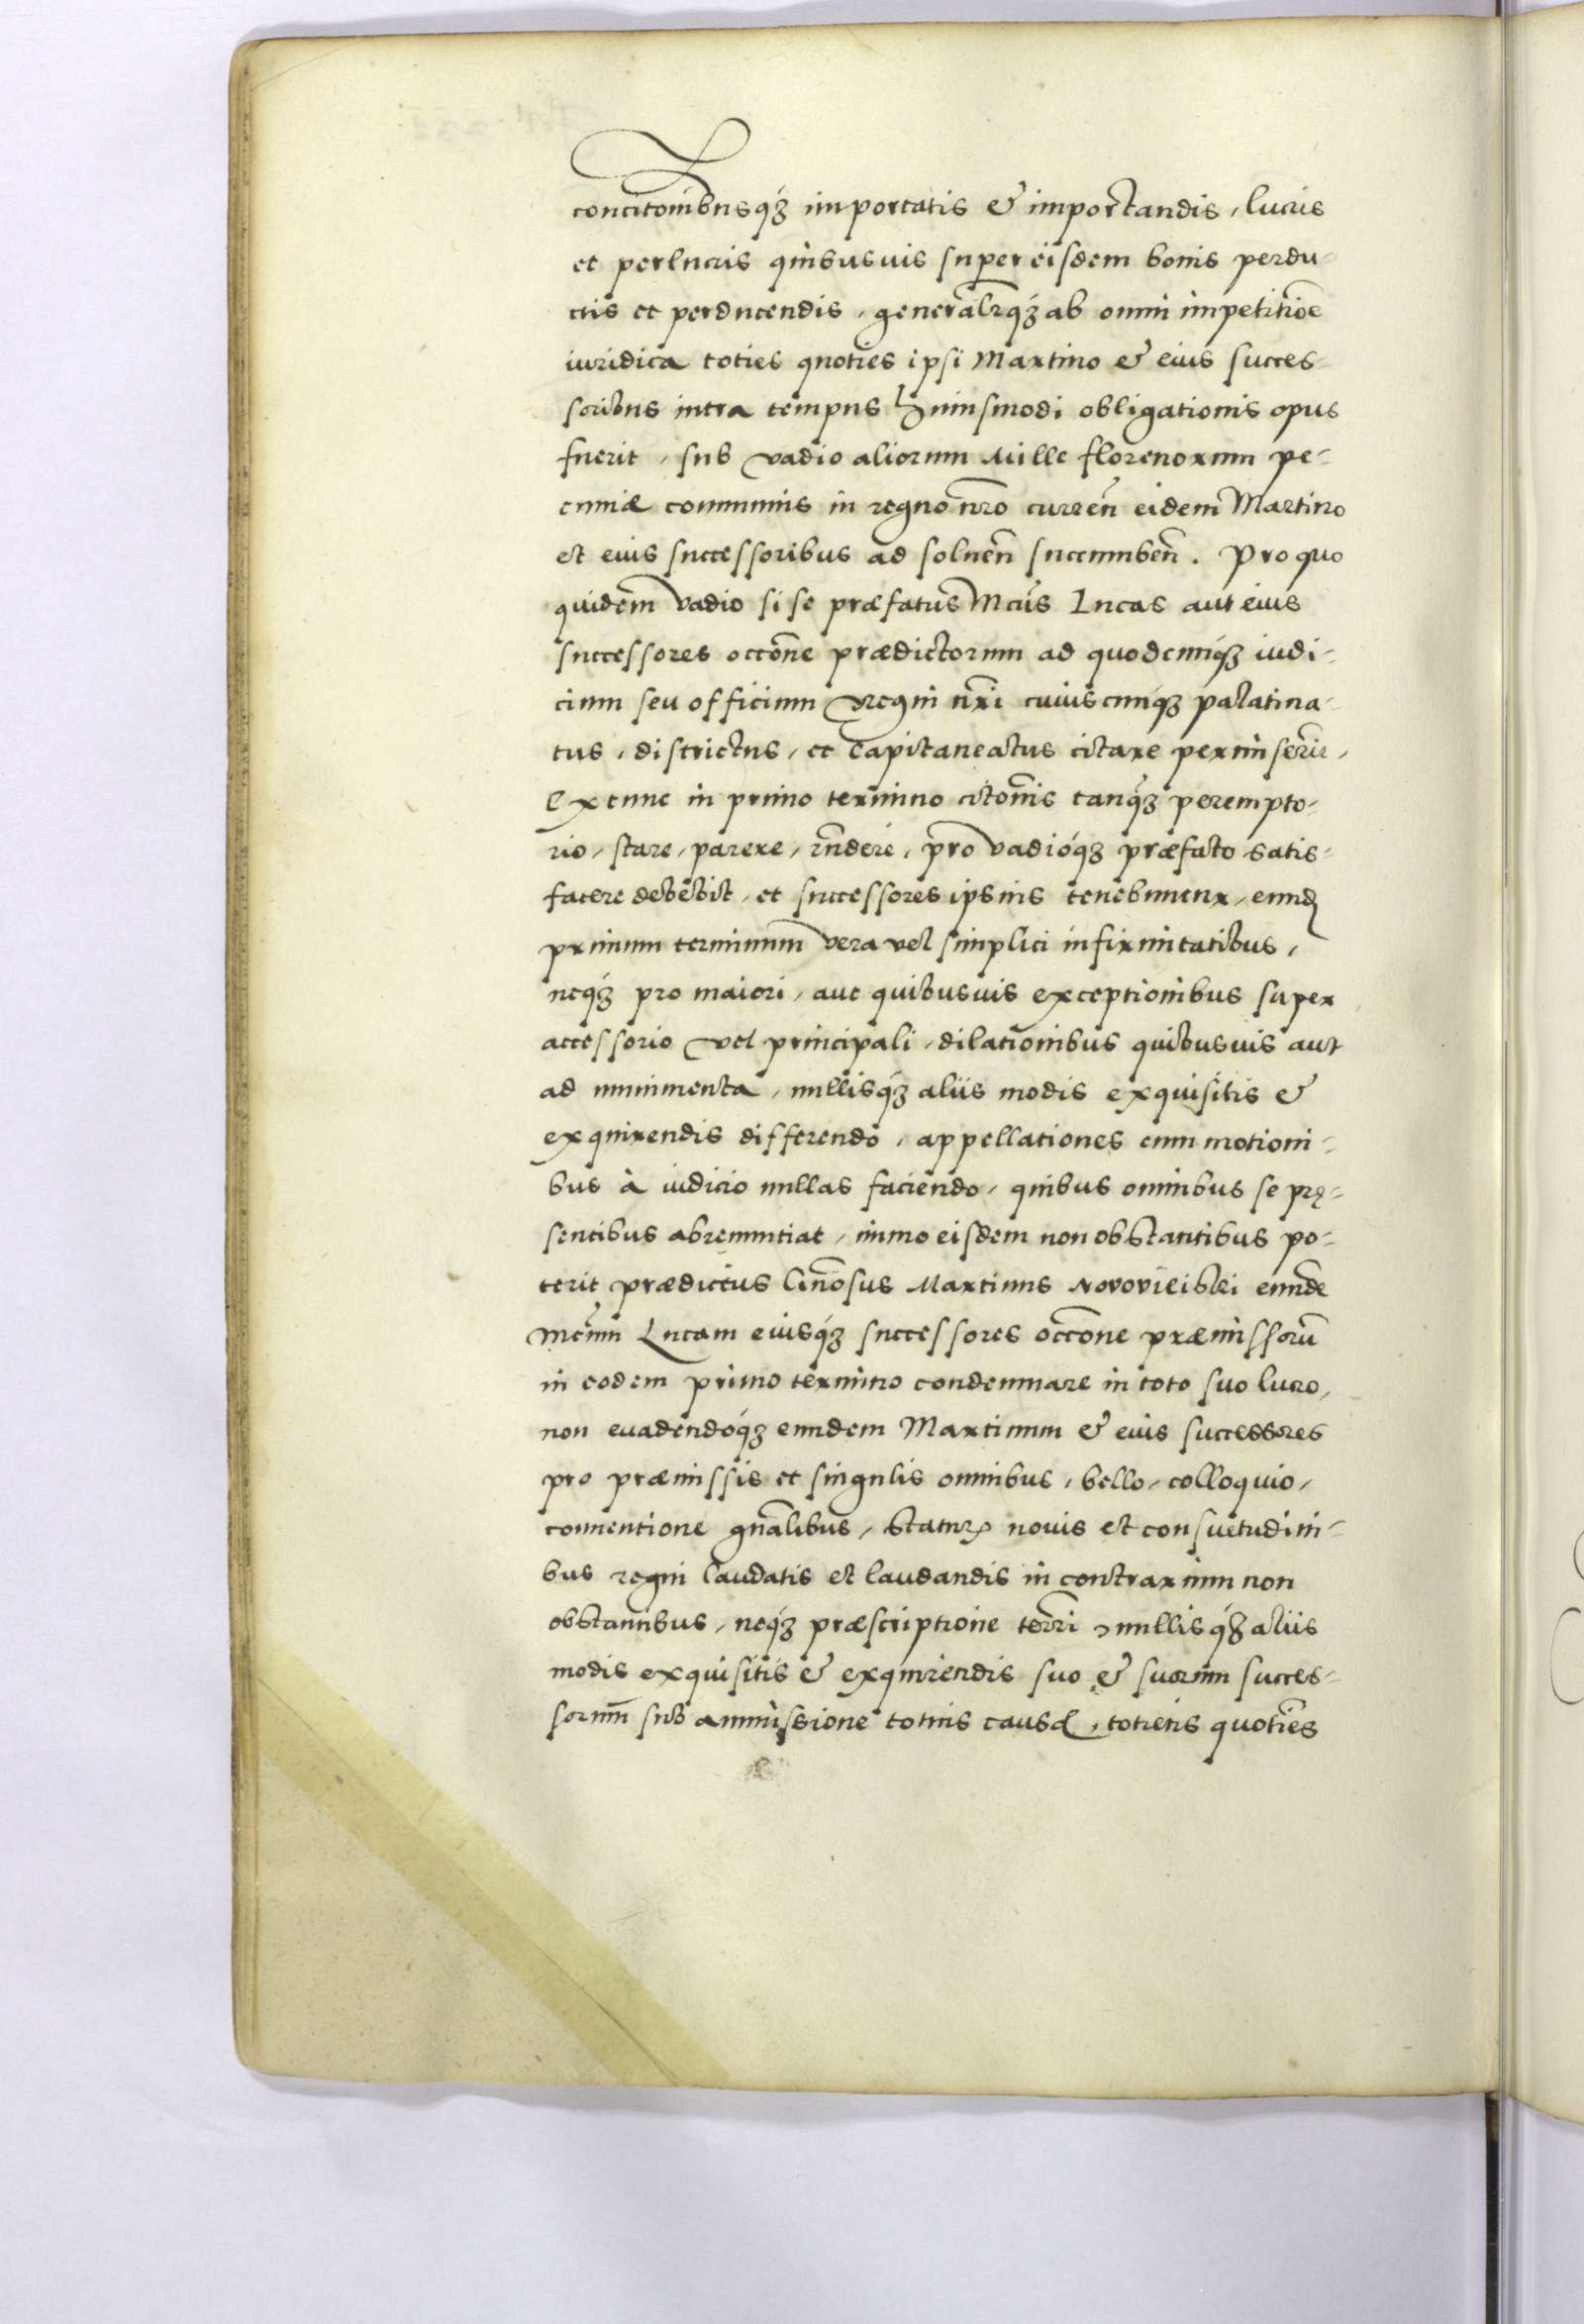 concitoni͞busq́ꝫ importatis & importandis, lucris
et perlucris quibusuis super eisdem bonis perdu-
ctis et perducendis, generalr̃q́ꝫ ab omni impetitioe͞
iuridica toties quoties ipsi Martino & eius succes-
soribus intra tempus huiusmodi obligationis opus
fuerit, sub vadio aliorum Mille florenorum pe-
cuniæ communis in regno nr͞o curren͞ eidem Martino
et eius successoribus ad soluen͞ succumben͞. Pro quo
quidem vadio si se præfatus Mcus͞ Lucas aut eius
successores occo͞ne prædictorum ad quodcunq́ꝫ iudi-
cium seu officium regni nr͞i cuiuscunq́ꝫ palatina-
tus, districtus, et Capitaneatus citare permiserit,
Ex tunc in primo termino cito͞nis tanq́ꝫ perempto-
rio, stare, parere, rn͞dere, pro vadióq́ꝫ præfato satis-
facere debebit, et successores ipsius tenebuntur, eund͞
primum terminum vera vel simplici infirmitatibus,
neq́ꝫ pro maiori, aut quibusuis exceptionibus super
accessorio vel principali, dilationibus quibusuis aut
ad munimenta, nullisq́ꝫ aliis modis exquisitis &
exquirendis differendo, appellationes cum motioni-
bus à iudicio nullas faciendo, quibus omnibus se prę-
sentibus abrenuntiat, immo eisdem non obstantibus po-
terit prædictus Gn͞osus Martinus Novovieiski eunde͞
Mcum͞ Lucam eiusq́ꝫ successores occo͞ne præmissoru͞
in eodem primo termino condemnare in toto suo lucro,
non euadendóq́ꝫ eundem Martinum & eius successores
pro præmissis et singulis omnibus, bello, colloquio,
conuentione gn͞alibus, statutꝭ novis et consuetudini-
bus regni laudatis et laudandis in contrarium non
obstantibus, neq́ꝫ præscriptione terr͞i, nullisq́ꝫ aliis
modis exquisitis & exquirendis suo & suorum succes-
sorum sub ammissione totius causę, totiens quoties